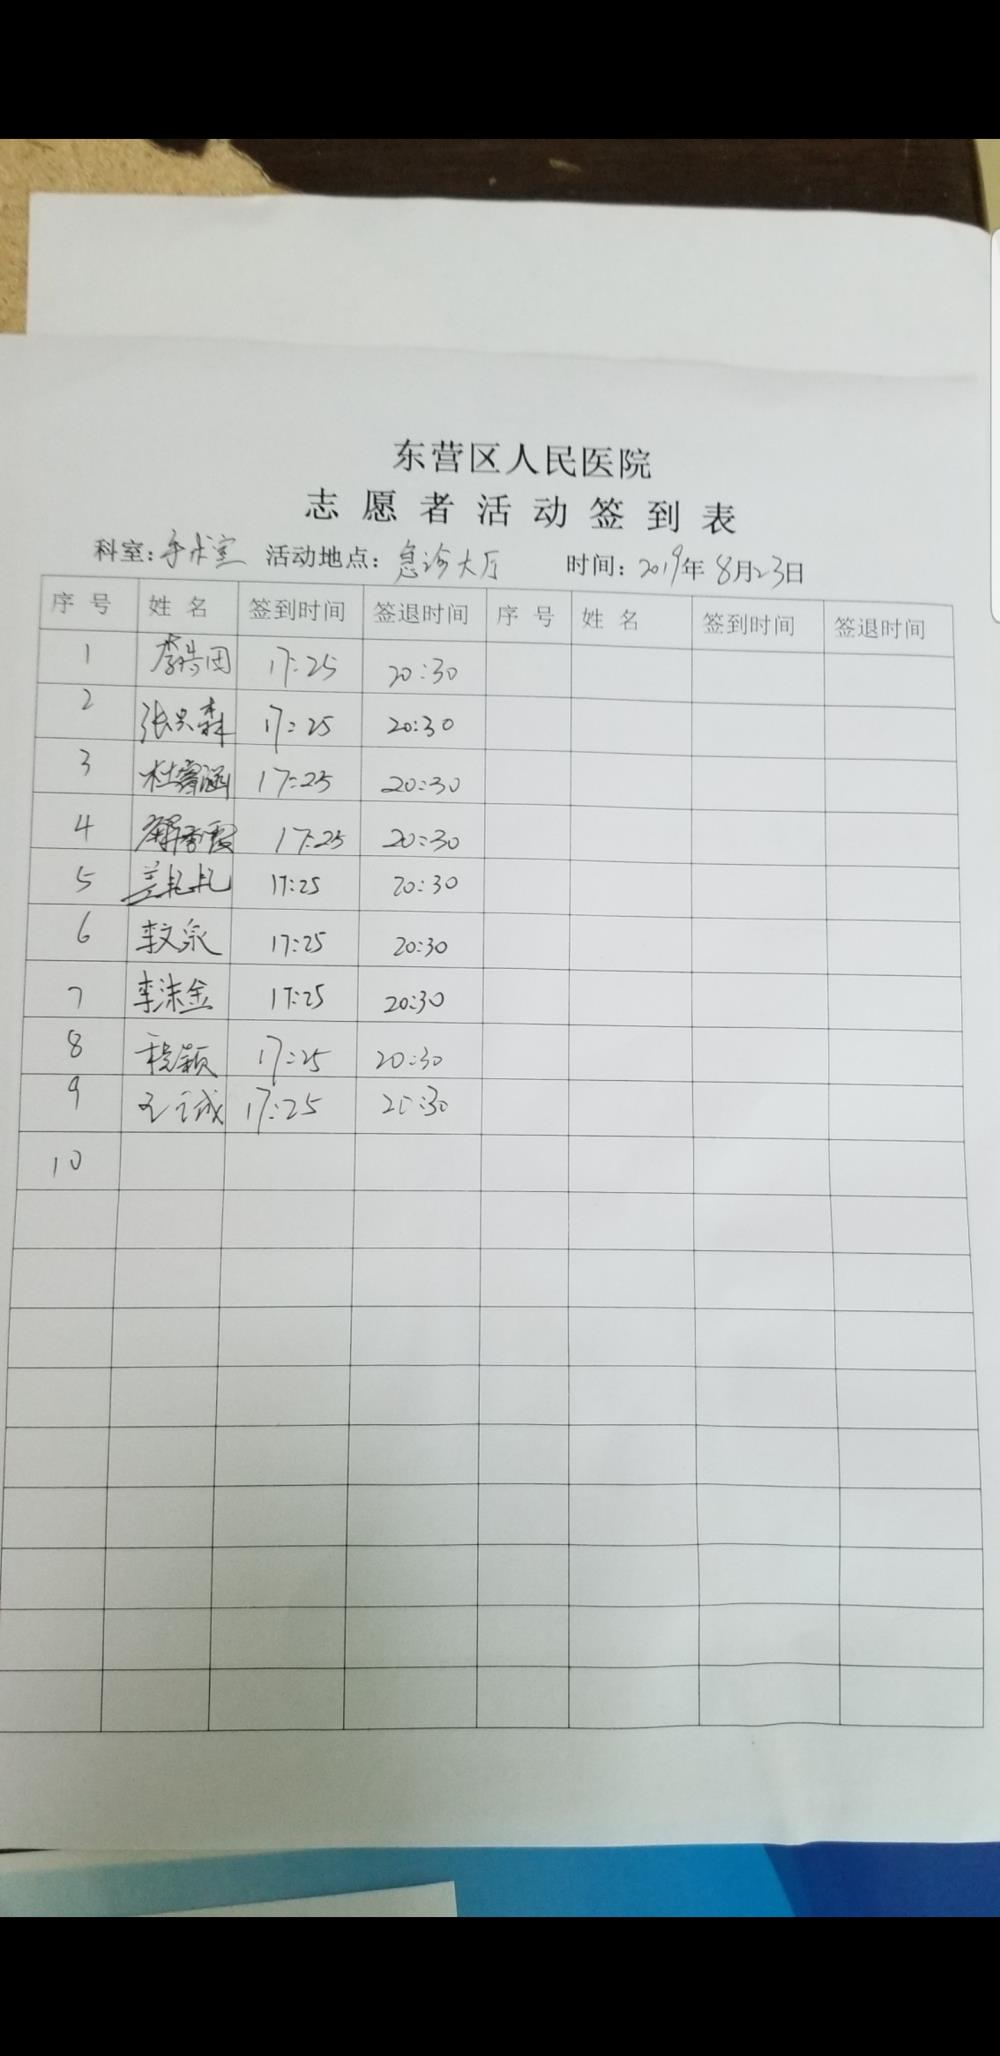 东营区人民医院
志愿者活动签到表
科室：手术室 活动地点：急诊大厅 时间：2019年8月23日
序号 姓名 签到时间 签退时间 序号 姓名 签到时间 签退时间
1 李浩田 17:25 20:30
2 张兴森 17:25 20:30
3 杜睿涵 17:25 20:30
4 17:25 20:30
5 17:25 20:30
6 李文泉 17:25 20:30
7 李沫金 17:25 20:30
8 程颖 17:25 20:30
9 17:25 20:30
10